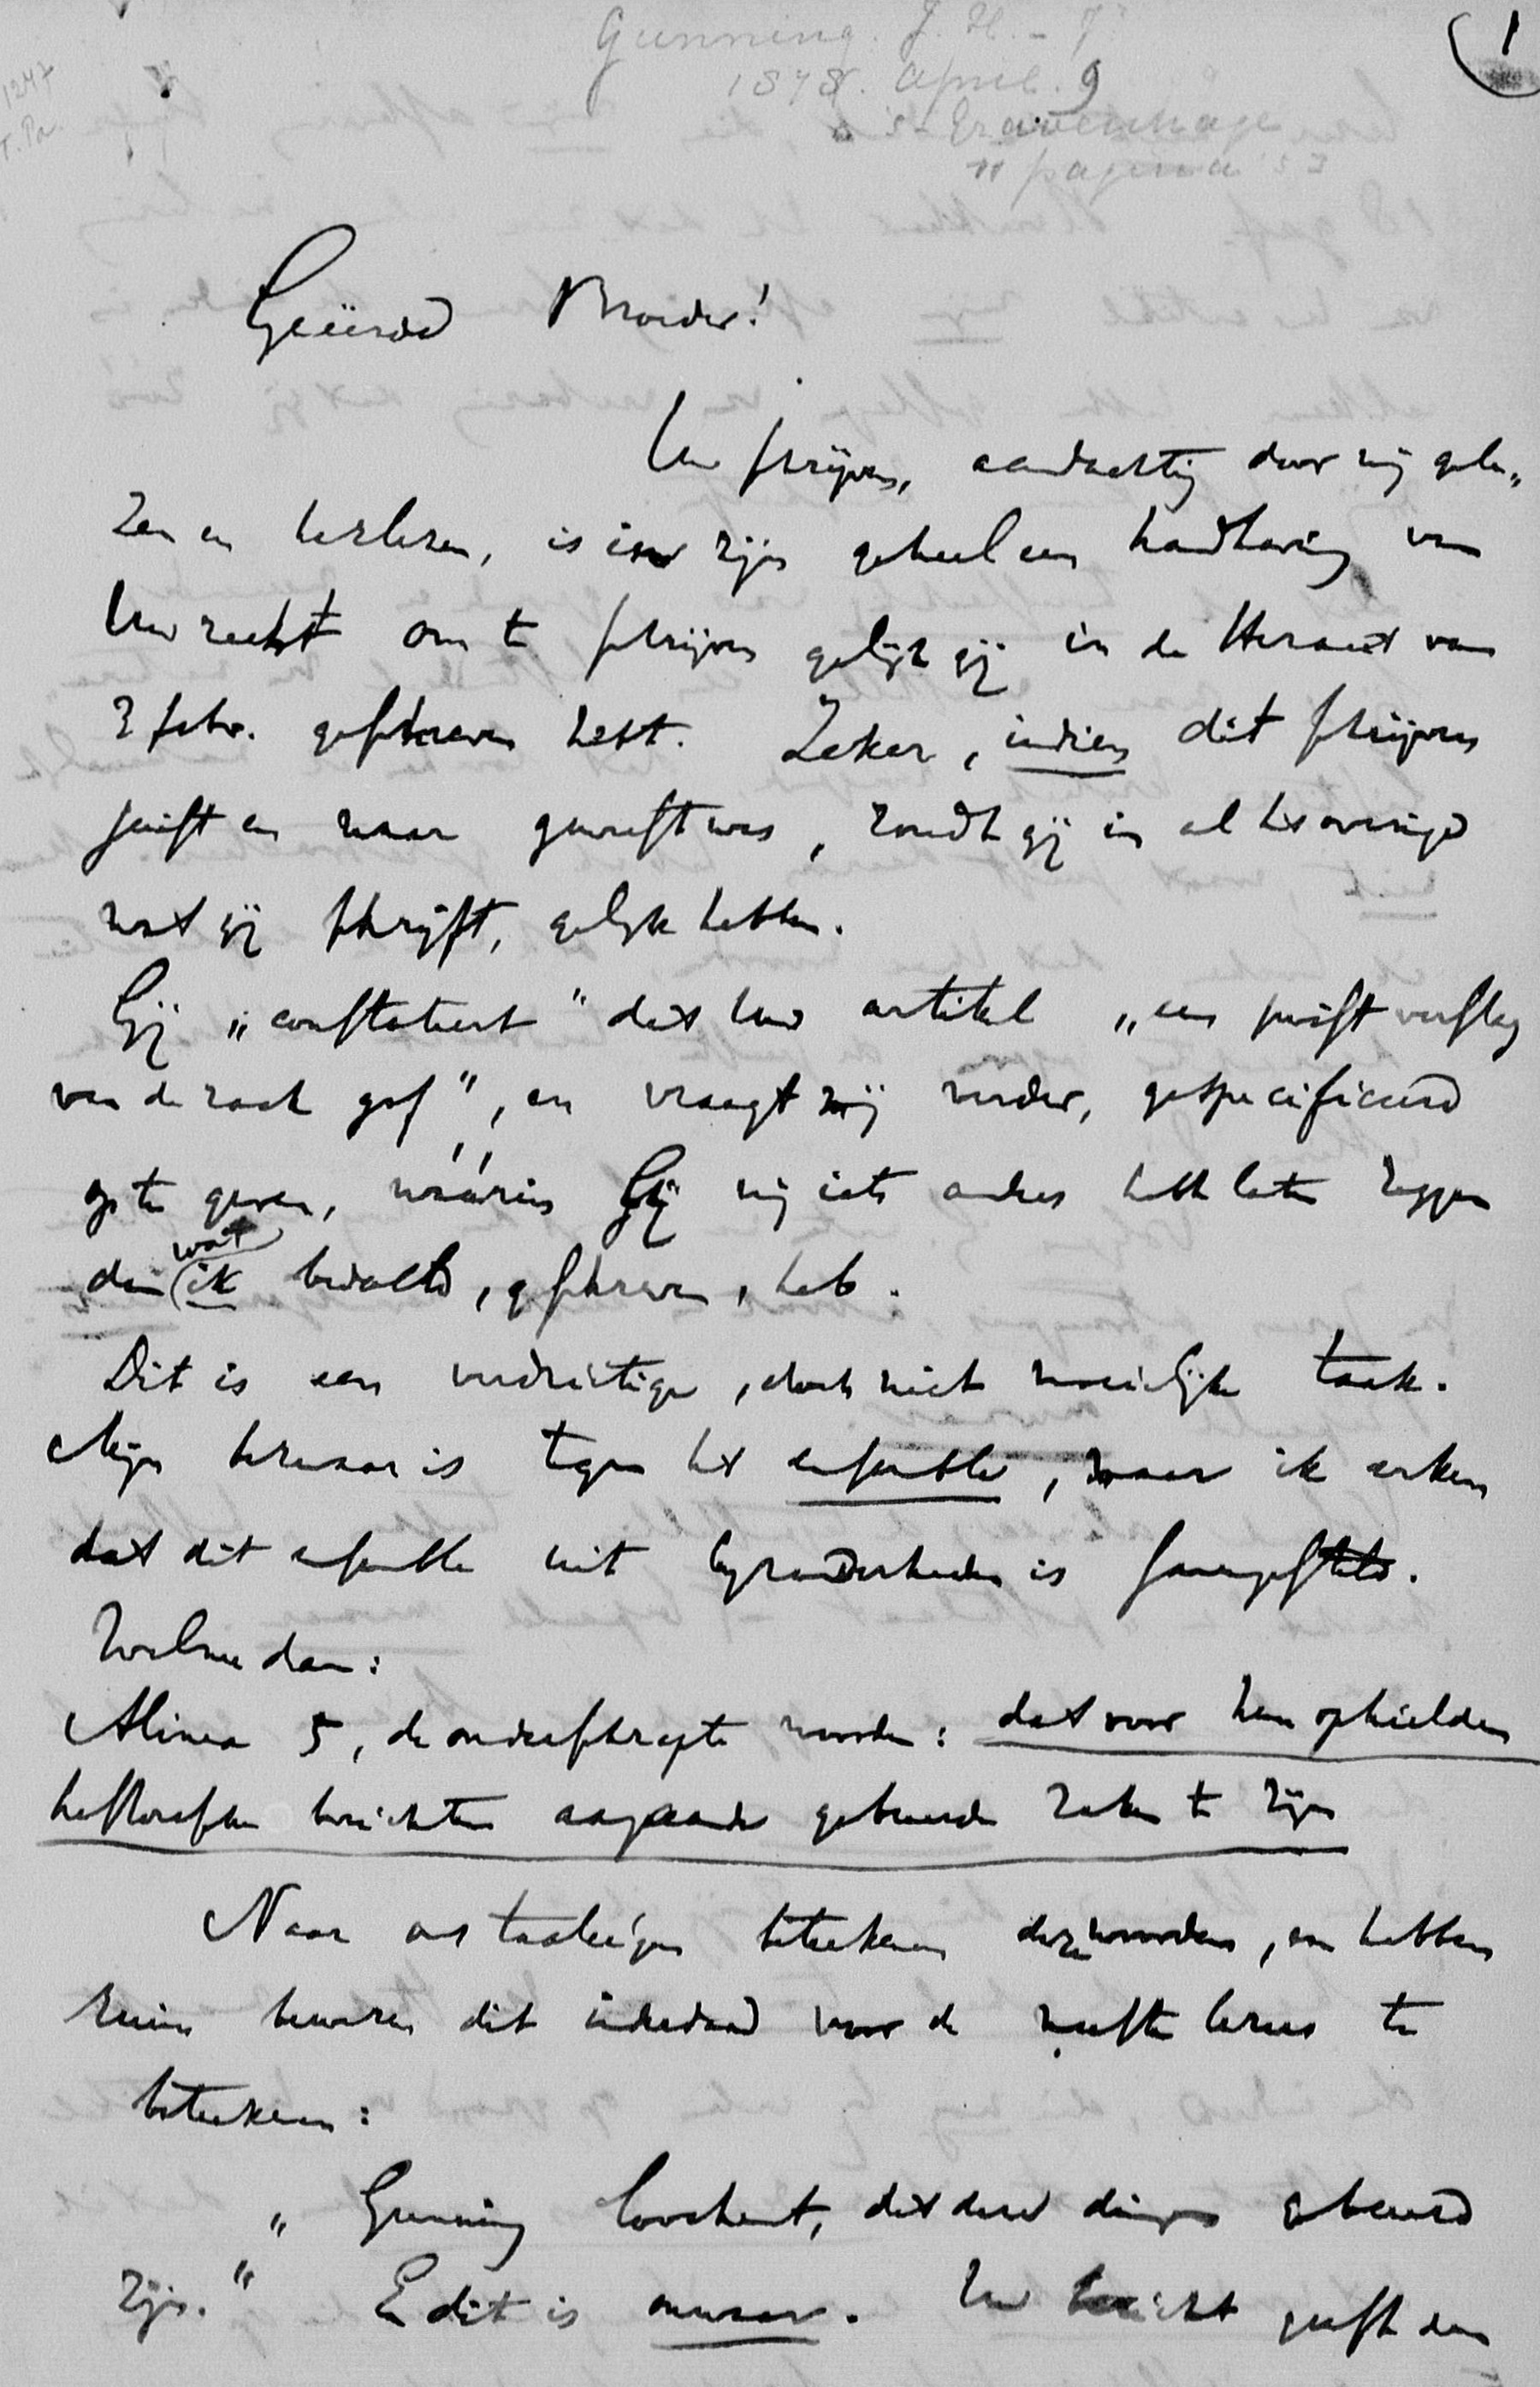 Gunning. J. H. - J
1878. April. 9
's-Gravenhage
11 pagina's
1
1247
Geëerde Broeder!
Uw schrijven, aandachtig door mij gele„
zen en herlezen, is in zijn geheel een handhaving van
Uw recht om te schrijven gelijk gij in de Heraut van
3 febr. geschreven hebt. Zeker, indien dit schrijven
juist en waar geweest was, zoudt gij in al het overige
wat gij schrijft, gelijk hebben.
Gij „constateert" dat Uw artikel „een juist verslag
van de zaak gaf", en vraagt mij verder, gespecificeerd
op te geven, wáárin Gij mij iets anders hebt laten zeggen
dan wat ik bedoeld, geschreven, heb.
Dit is een verdrietige, doch niet moeielijke taak.
Mijn bezwaar is tegen het ensemble, maar ik erken
dat dit ensemble uit byzonderheden is samengesteld.
Welnu dan:
Alinea 5, de onderschrapte woorden: dat voor hen ophielden
historische berichten aangaande gebeurde zaken te zijn
Naar ons taaleigen beteekenen deze woorden, en hebben
ruim bewezen dit inderdaad voor de meeste lezers te
beteekenen:
„Gunning loochent, dat deze dingen gebeurd
zijn." En dit is onwaar. Uw bericht geeft den